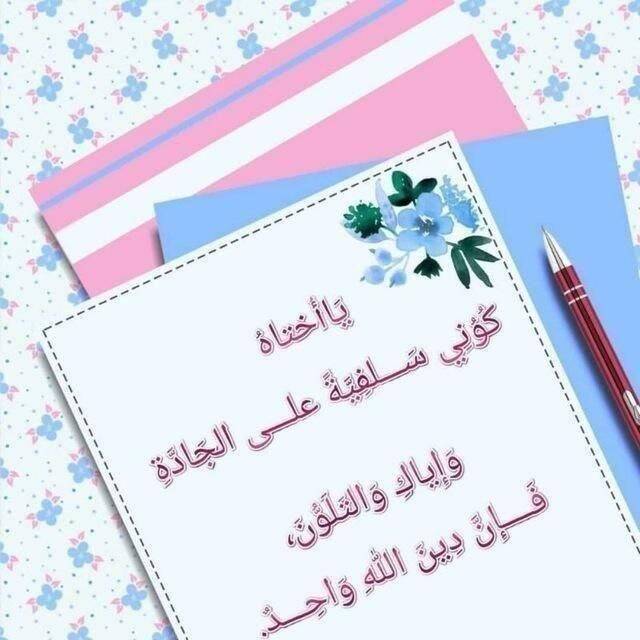 يَاأُختاهُ
كُوْنِي سَـلفِيَّةً علـى الجَادَّةِ
وَإياكِ وَالتلَوُّنَ،
فَـإنَّ دِينَ اللهِ وَاحِـدٌ.